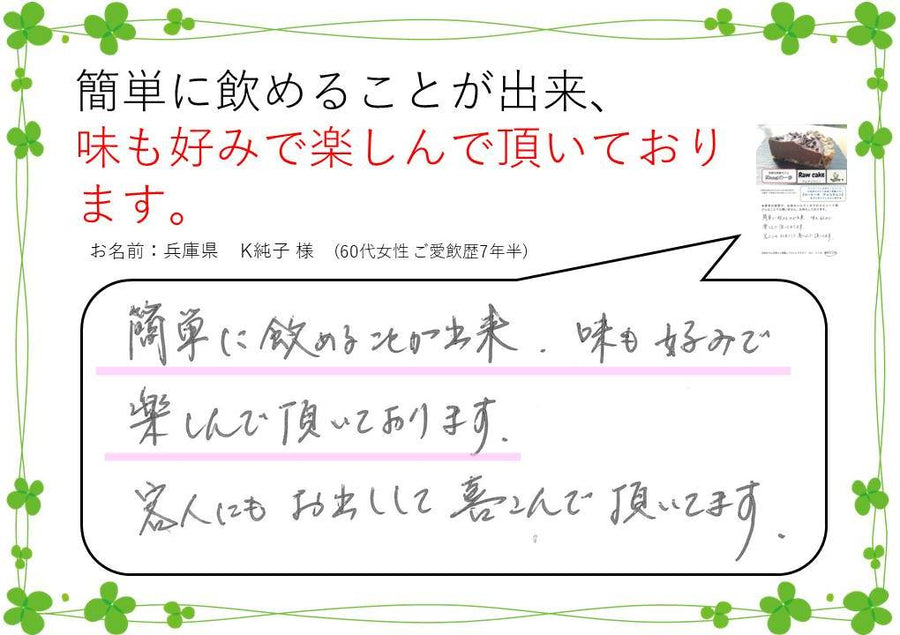 簡単に飲めることが出来、
味も好みで楽しんで頂いており
ます。
お名前:兵庫県 K純子 様 (60代女性 ご愛飲歴7年半)
Raw cake
簡単に飲めることが出来. 味も好みで
楽しんで頂いております.
客人にもお出しして喜こんで頂いてます.